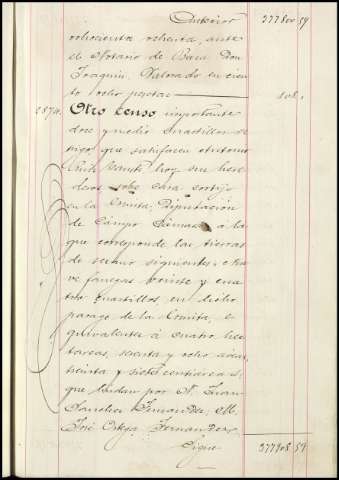 Anterior 377807.59
ochocientos ochenta, ante
el Notario de Baza Don
Joaquin. Valorado en cien
to ocho pesetas 108.
1574. Otro censo importante
doce y medio cuartillos de
trigo, que satisfacen Antonio
hoy sus here
deros sobre casa cortijo
en la Comita, Diputación
de Campo Cámara, á la
que corresponde las tierras
de secano siguientes: nue
ve fanegas, veinte y cua
tro cuartillos, en dicho
parage de la Comita, e
quivalentes á cuatro hec
tareas, sesenta y ocho areas,
treinta y siete centiareas,
que lindan por N. Juan
Sanchez Fernandez, M.
José Ortega Fernandez,
Sigue 377808.59